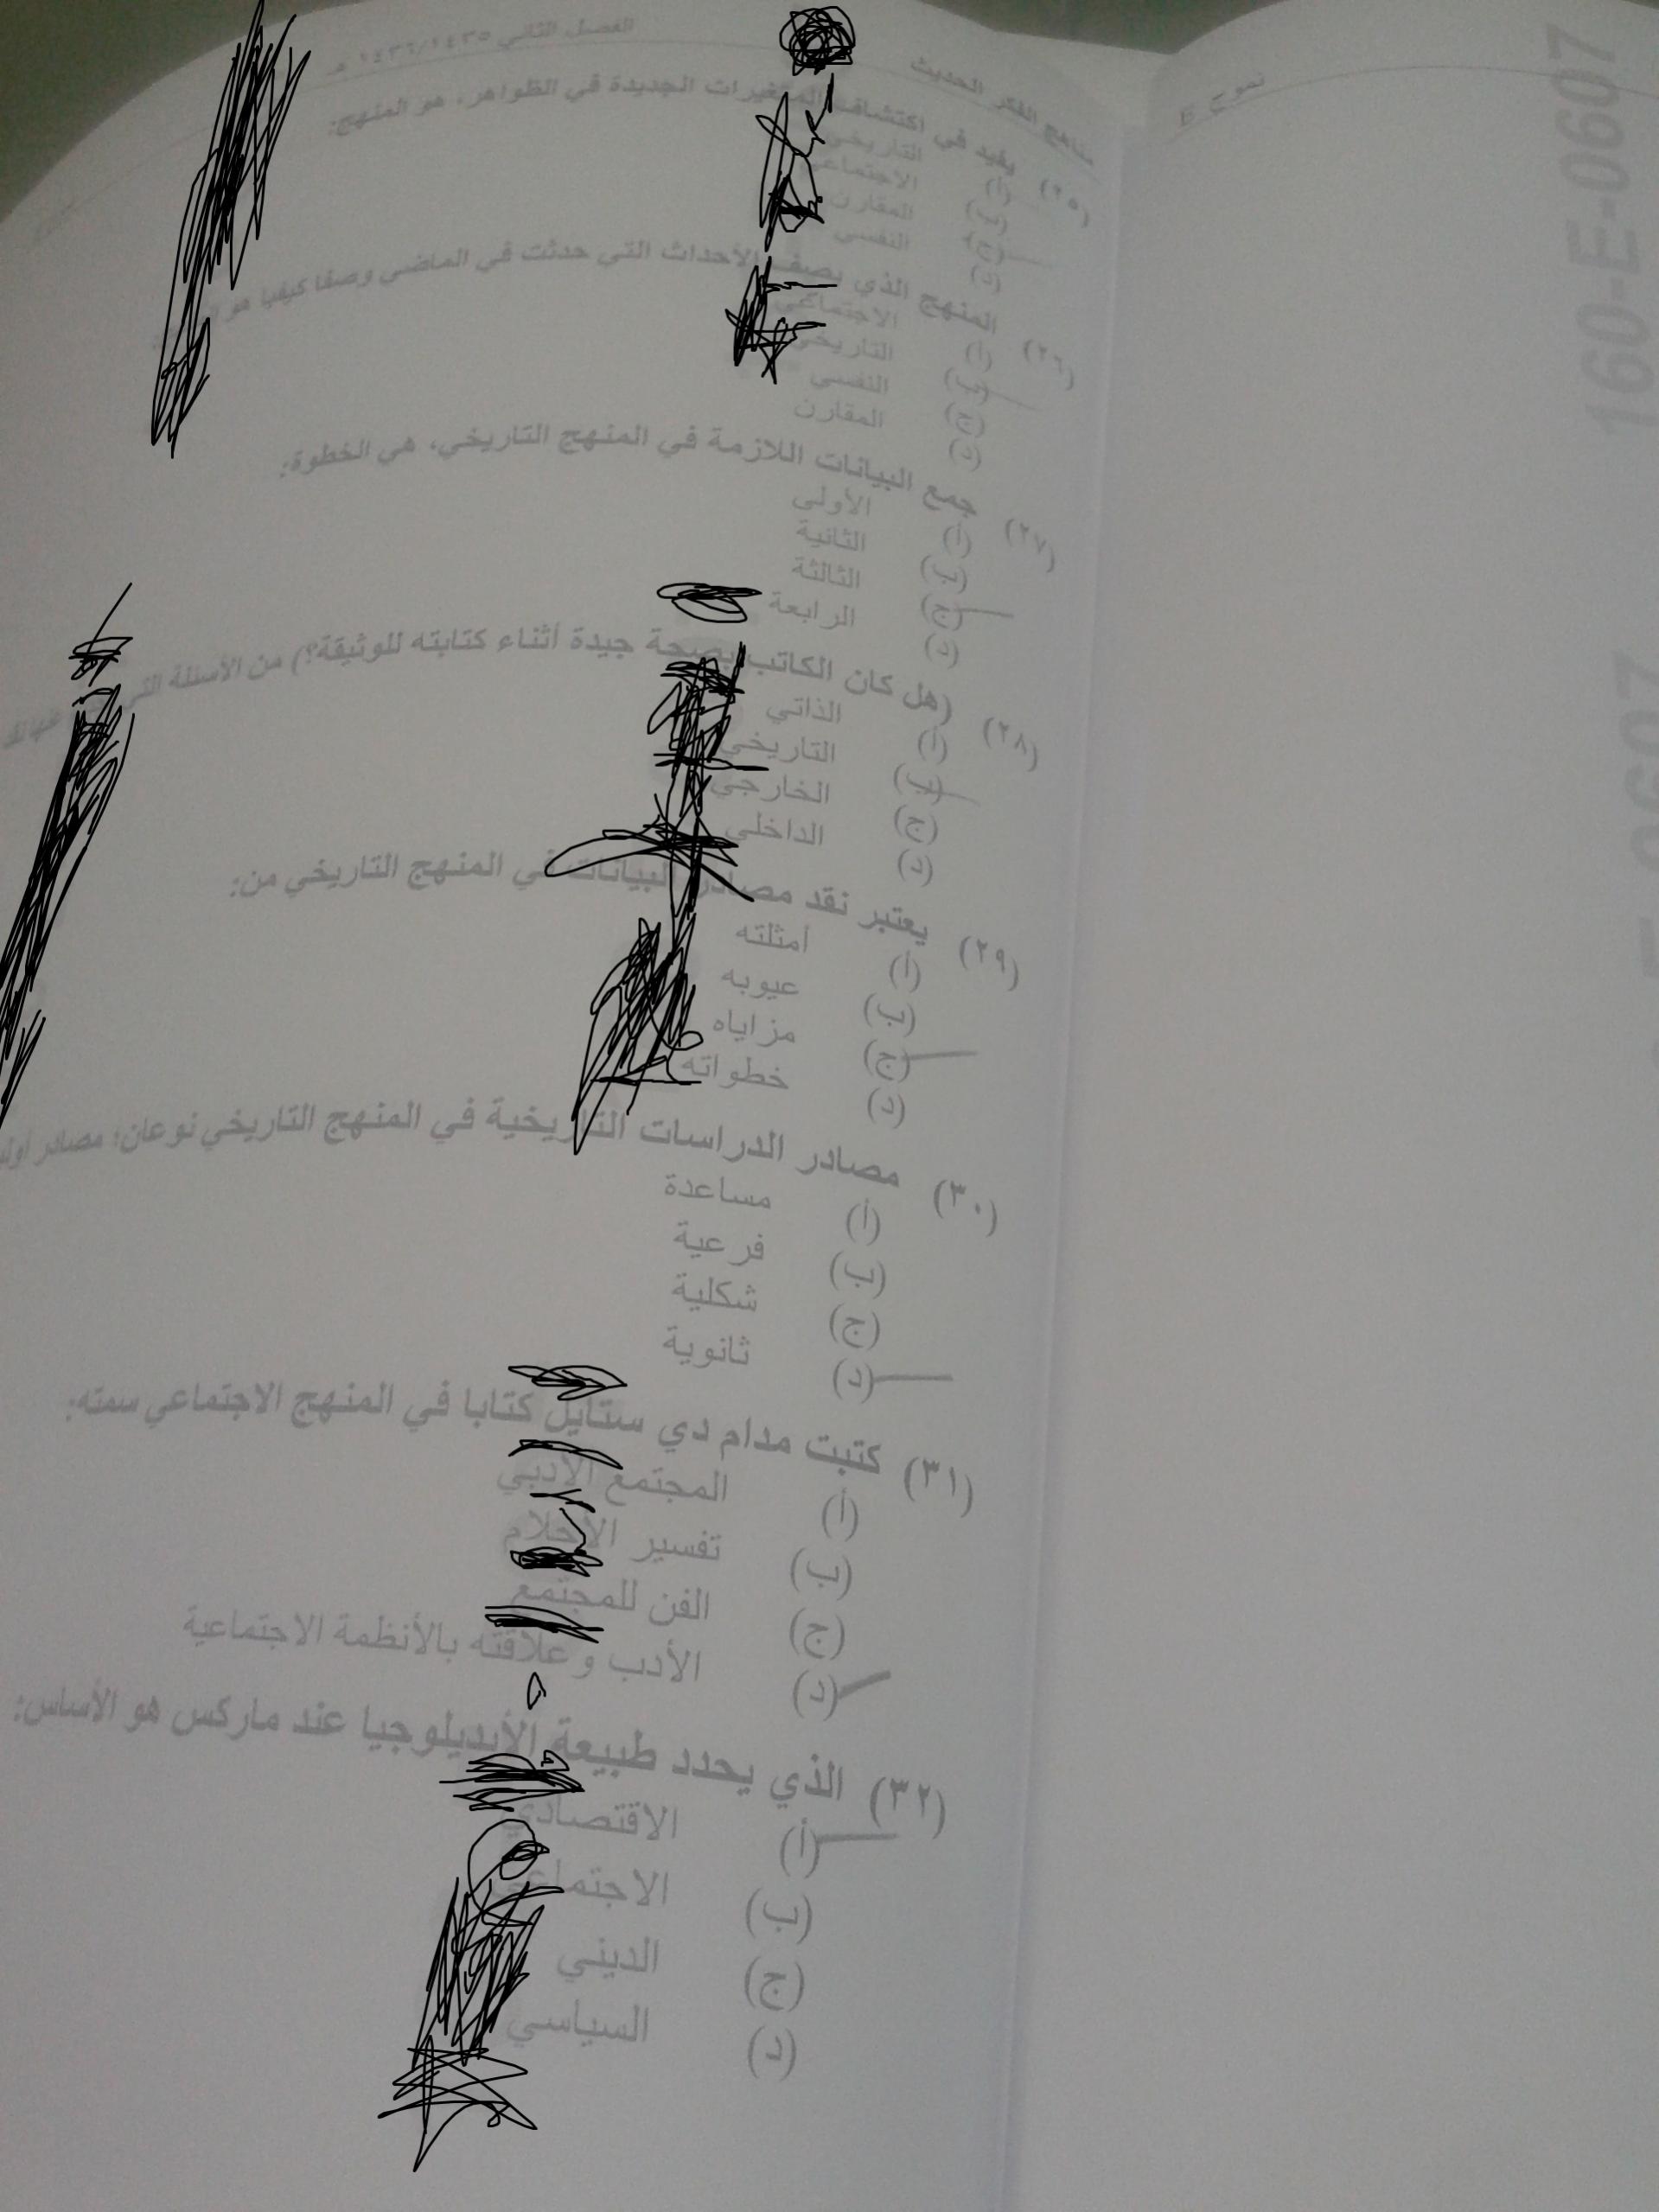 نموذج E
160-E-0607
مناهج الفكر الحديث
الفصل الثاني ١٤٣٦/١٤٣٥ هـ
(٢٥) يفيد في اكتشاف المتغيرات الجديدة في الظواهر، هو المنهج:
(أ) التاريخي
(ب) الاجتماعي
(ج) المقارن
(د) النفسي
(٢٦) المنهج الذي يصف الأحداث التي حدثت في الماضي وصفا كيفيا هو
(أ) الاجتماعي
(ب) التاريخي
(ج) النفسي
(د) المقارن
(٢٧) جمع البيانات اللازمة في المنهج التاريخي، هي الخطوة:
(أ) الأولى
(ب) الثانية
(ج) الثالثة
(د) الرابعة
(٢٨) (هل كان الكاتب بصحة جيدة أثناء كتابته للوثيقة؟) من الأسئلة التي
(أ) الذاتي
(ب) التاريخي
(ج) الخارجي
(د) الداخلي
(٢٩) يعتبر نقد مصادر البيانات في المنهج التاريخي من:
(أ) أمثلته
(ب) عيوبه
(ج) مزاياه
(د) خطواته
(٣٠) مصادر الدراسات التاريخية في المنهج التاريخي نوعان؛ مصادر
(أ) مساعدة
(ب) فرعية
(ج) شكلية
(د) ثانوية
(٣١) كتبت مدام دي ستايل كتابا في المنهج الاجتماعي سمته:
(أ) المجتمع الأدبي
(ب) تفسير الأحلام
(ج) الفن للمجتمع
(د) الأدب وعلاقته بالأنظمة الاجتماعية
(٣٢) الذي يحدد طبيعة الأيديلوجيا عند ماركس هو الأساس:
(أ) الاقتصادي
(ب) الاجتماعي
(ج) الديني
(د) السياسي